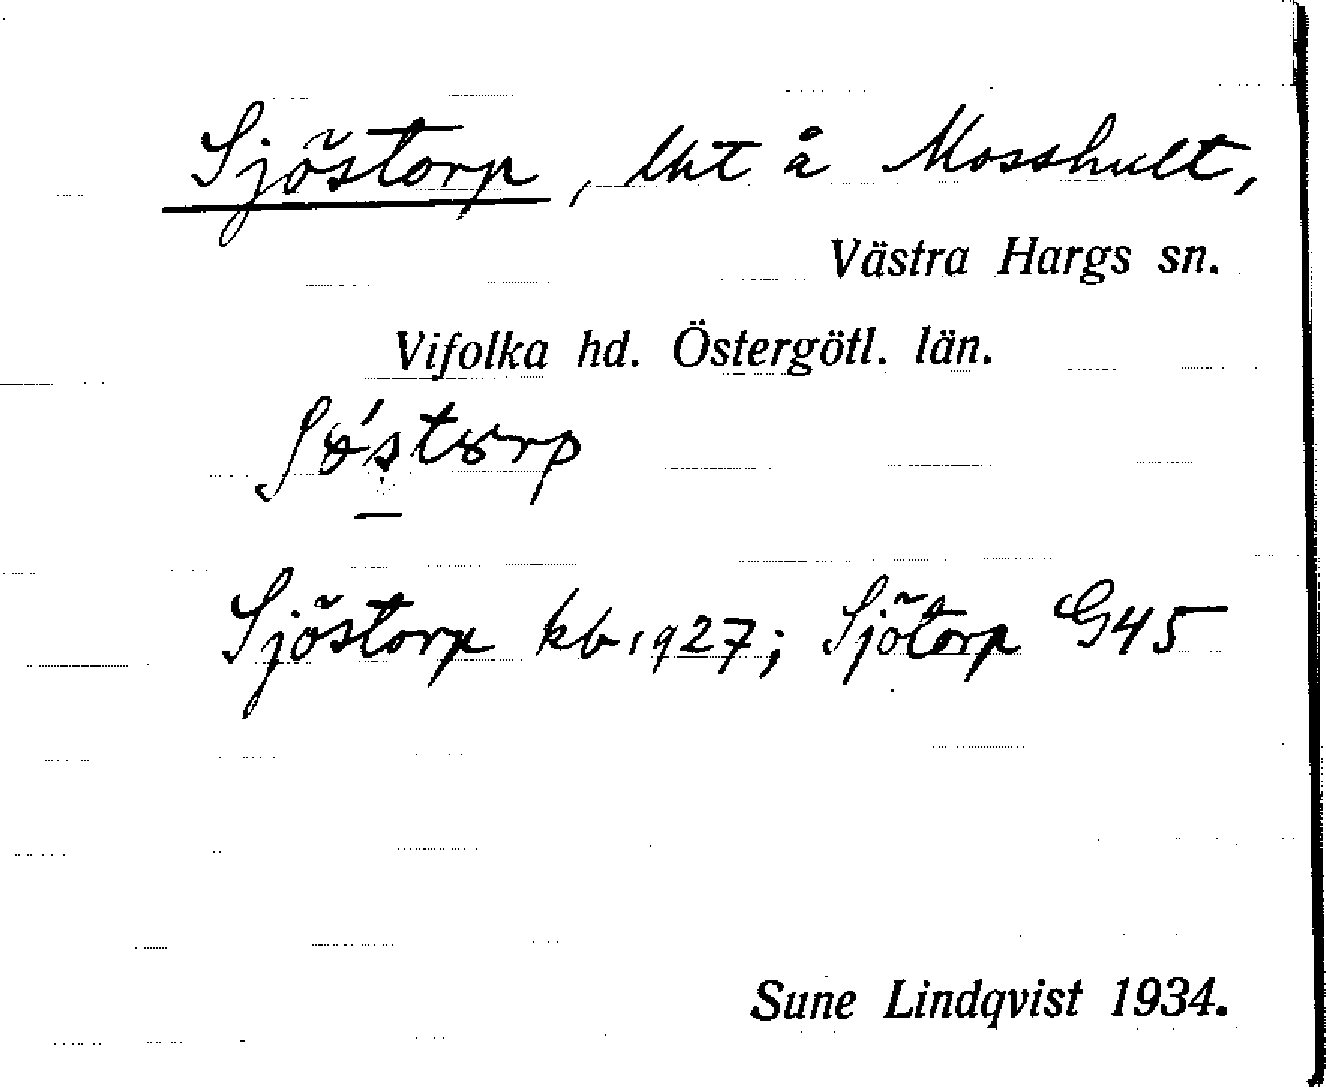 Sjöstorp, lht å Mosshult,
Västra Hargs sn.
Vifolka hd. Östergötl. län.
Sjöstorp kb 1927; Sjötorp G45
Sune Lindqvist 1934.